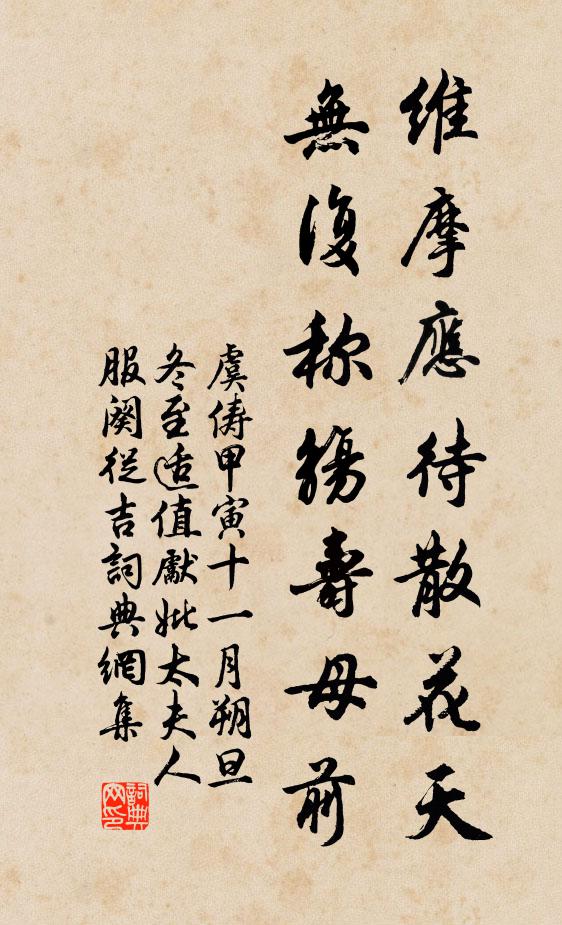 維摩應待散花天
無復称觴壽母前
虞儔甲寅十一月朔旦
冬至适值獻妣太夫人
服闋從吉詞典網集
詞典
网印